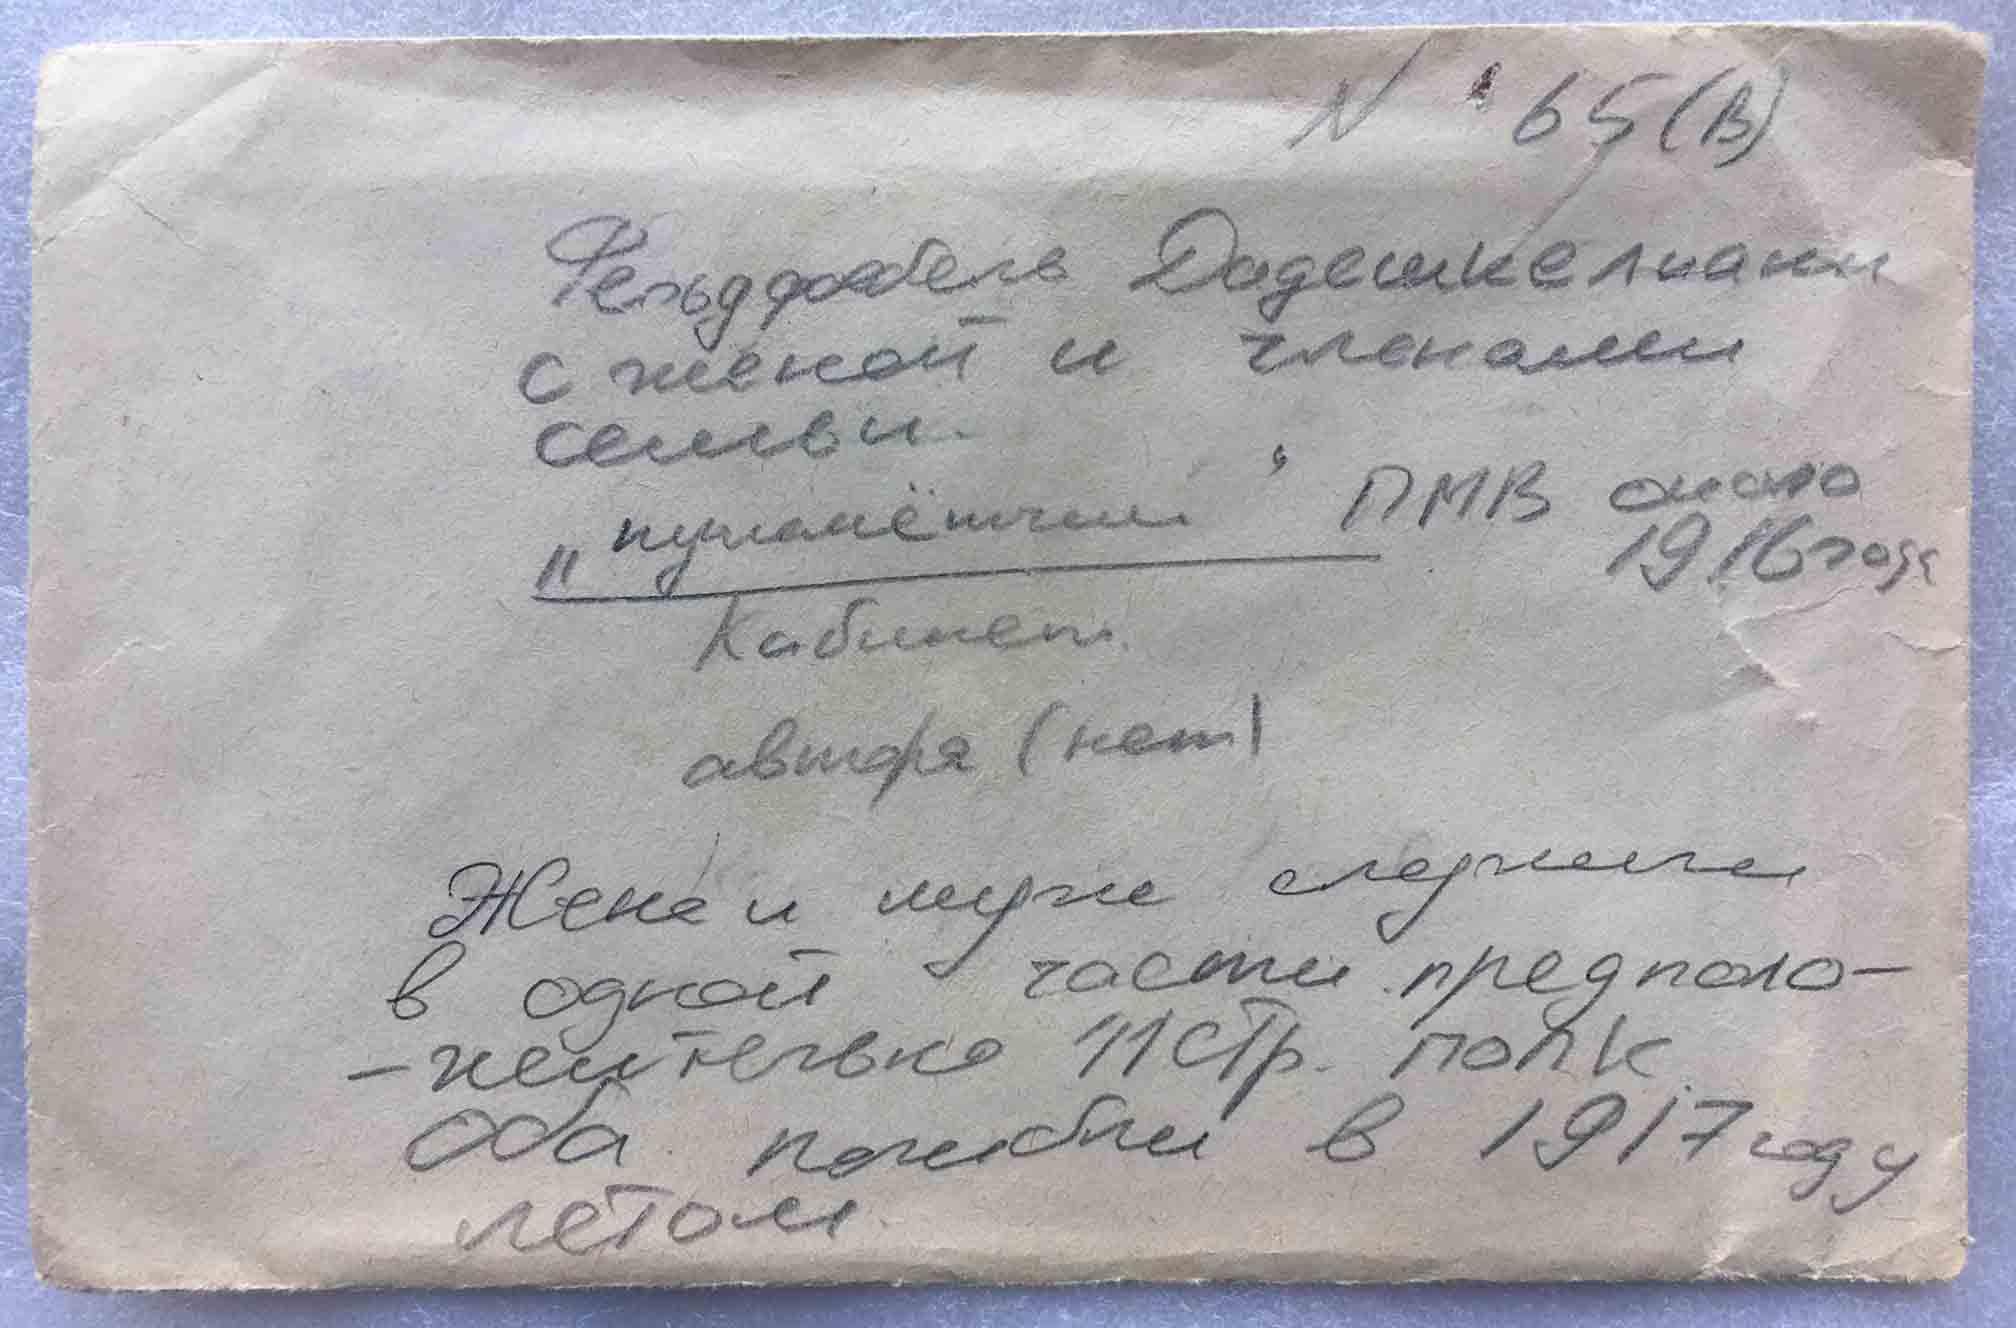 N 65(В)
Фельдфебель Дадешкелиани
с женой и членами
семьи.
„пулемётчик" ПМВ около
1916 года
Кабинет.
автора (нет)
Жена и муж служили
в одной части предполо-
-жительно 11 стр. полк.
Оба погибли в 1917 году
летом.